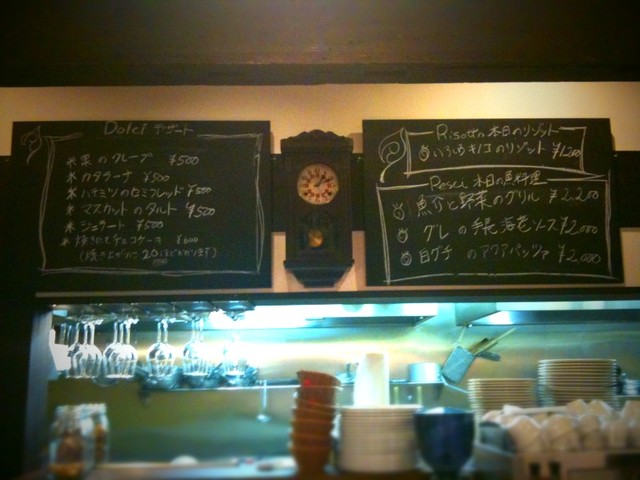 Dolci デザート
※栗のクレープ ¥500
※カタラーナ ¥500
※ハチミツのセミフレッド ¥500
※マスカットのタルト ¥500
※ジェラート ¥500
※焼きたてチョコケーキ ¥600
(焼き上がりに20分ほどかかります)
Risotto 本日のリゾット
いろいろキノコのリゾット ¥1,200
Pesci 本日の魚料理
魚介と野菜のグリル ¥2,200
グレの手長海老ソース ¥2,000
白グチのアクアパッツァ ¥2,000